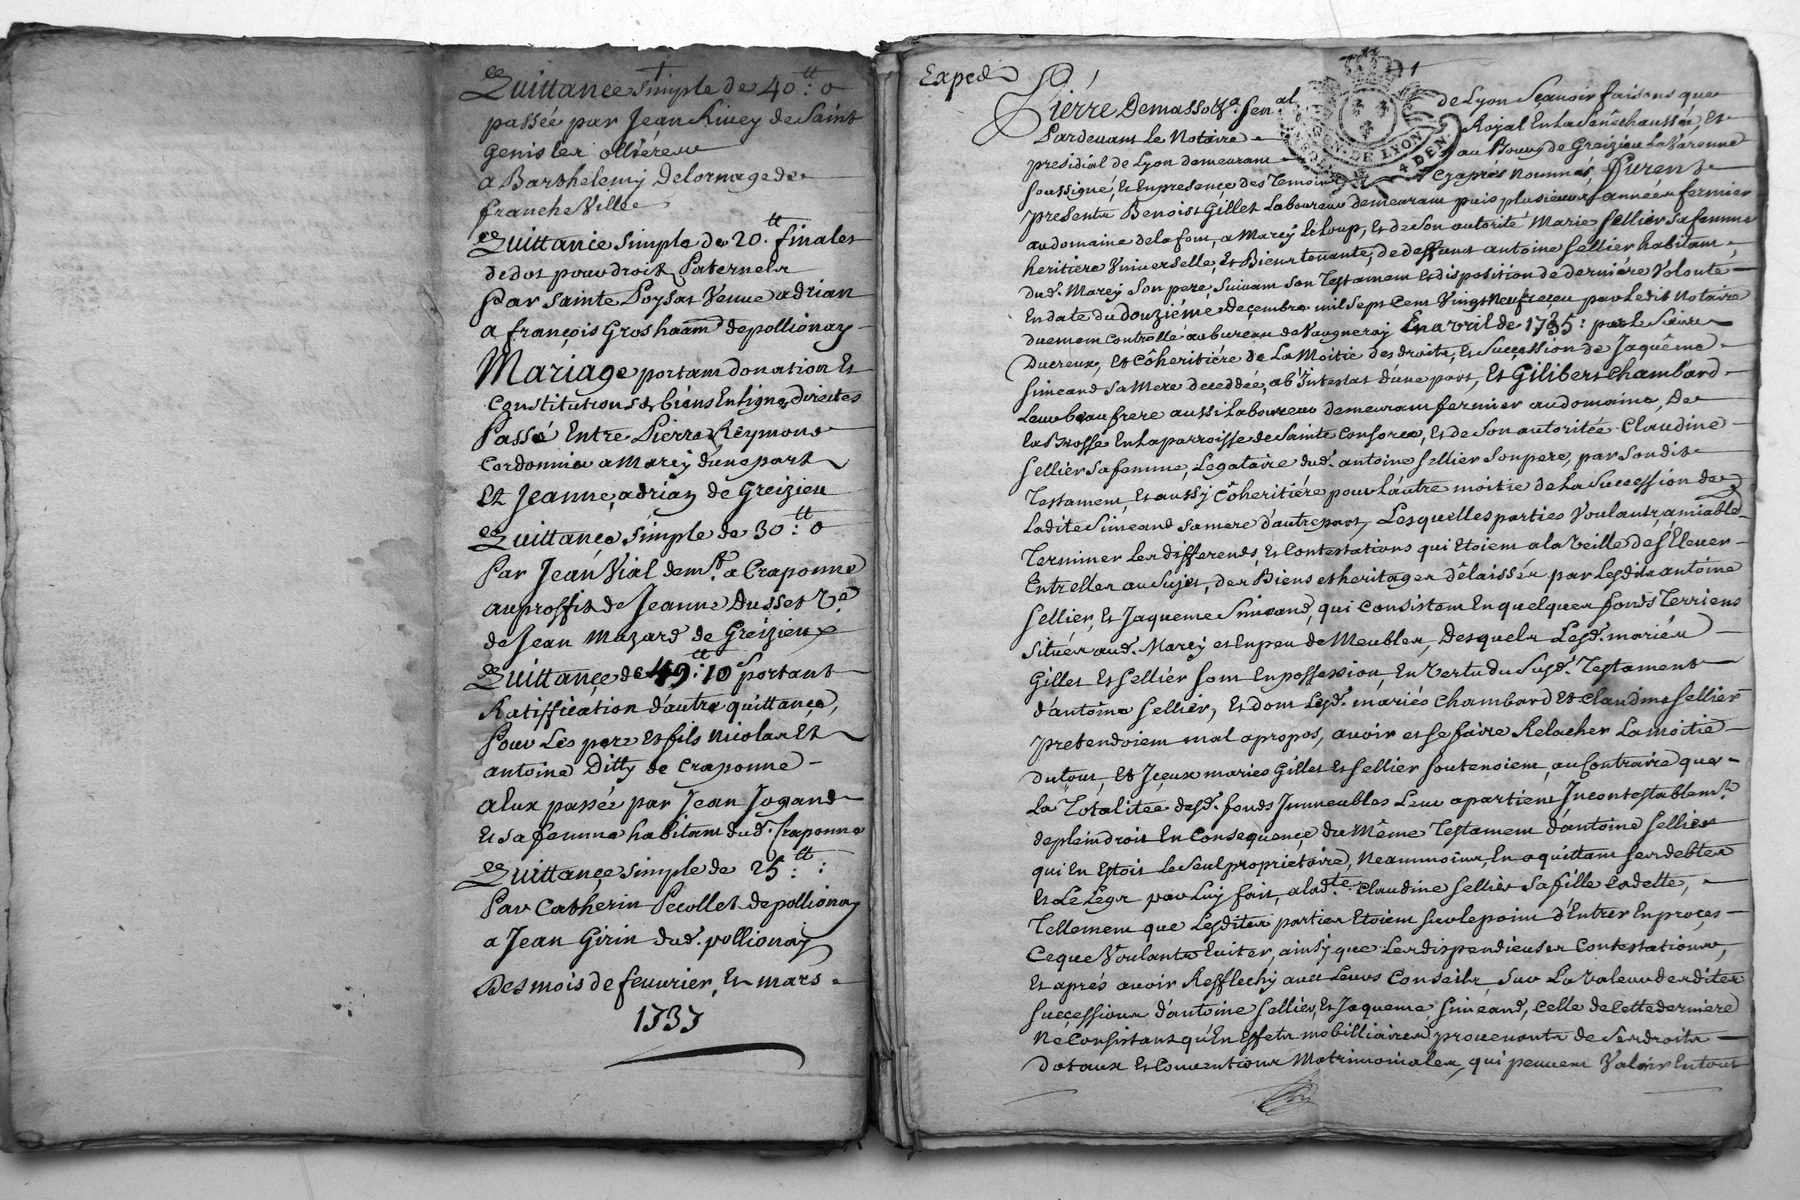 Quittance simple de 40.tt: o
passée par Jean Rivey de Saint
Genis les ollieres
a Barthelemy Delornage de
francheville
Quittance simple de 20.tt finales
de dot pour droits Paternels
Par Sainte Poysat Veuve adrian
a françois Groshaam de pollionay
Mariage portant donation Et
Constitutions de biens En ligne Directes
Passé Entre Pierre Reymond
Cordonnier a Marcy d'une part
Et Jeanne adrian de Greizieu
Quittance Simple de 30.tt: o
Par Jean Vial demt. a Craponne
au proffit de Jeanne Dusset Ve.
de Jean Mazard de Greizieu
Quittance de 49.tt: 10s portant
Ratiffication d'autre quittance,
Pour Les pere Et fils Nicolas Et
antoine Ditty de Craponne
a Eux passée par Jean Jogand
Et Sa femme habitant dud. Craponne
Quittance simple de 25.tt:
Par Catherin Pecollet de pollionay
a Jean Girin dud. pollionay
Des mois de fevrier, Et mars
1737
Exped
Pierre Demasso Sen.al de Lyon Sçavoir faisons que
Pardevant Le Notaire Royal En La Senechaussée, Et
presidial de Lyon demeurant au Bourg de Greizieu La Varenne
Soussigné, Et En presence des Temoins Cy aprés Nommés, furent
presents Benoist Gillet Laboureur demeurant puis plusieurs années fermier
au domaine de la font, a Marcy Le Loup, Et de Son autorité Marie Sellier Sa femme
heritiere Universelle, Et Bientenante, de deffunt antoine Sellier habitant
dud. Marcy Son pere, Suivant Son Testament Et disposition de derniére Volonté
En date du douziéme Decembre mil Sept Cent Vingt Neuf reçeu par Ledit Notaire
duement Controllé au bureau de Vaugneray En avril de 1735: par Le Sieur
Ducreux, Et Côheritiére de La Moitié des droits, Et Succession de Jaquême
Simeand Sa Mere decedée, ab Intestat d'une part, Et Gilibert Chambard
Leur beau frere aussi Laboureur demeurant fermier au domaine, De
La Brosse En La parroisse de Sainte Consorce, Et de Son autoritée Claudine
Sellier Sa femme, Legataire dud. antoine Sellier Son pere, par Son dit
Testament, Et aussy Côheritiére pour L'autre moitié de La Succession de
Ladite Simeand Sa mere d'autre part, Lesquelles parties Voulants, amiable
Terminer Les differends, Et Contestations qui Etoient a la Veille de S'Elever
Entre Elles au Sujet, des Biens et heritages délaissés par Lesdits antoine
Sellier, Et Jaqueme Simeand, qui Consistent En quelques fonds Terriens
Situés aud. Marcy et En peu de Meubles, Desquels Lesd. mariés
Gillet Et Sellier Sont En possession, En Vertu du Susd. Testament
d'antoine Sellier, Et dont Lesd. mariés Chambard Et Claudine Sellier
pretendoient mal apropos, avoir et Se faire Relacher La moitié
du tout, Et Iceux mariés Gillet Et Sellier Soutenoient, au Contraire que
La Totalitée desd. fonds Immeubles Leur apartient Incontestablemt.
de plein droit En Consequence, du Même Testament d'antoine Sellier
qui En Etoit Le Seul proprietaire, Neammoins En aquittant Ses debtes
Et Le Legs par Luy fait, a lad.te Claudine Sellier Sa fille Cadette,
Tellement que Lesdites parties Etoient Sur le point d'Entrer En proçes
Ce que Voulants Eviter, ainsy que Les dispendieuses Contestations,
Et aprés avoir Refflechy avec Leurs Conseils Sur La Valeur desdites
Successions d'antoine Sellier, Et Jaqueme Simeand, Celle de Cette derniere
Ne Consistant qu'En Effets mobilliaires provenants de Ses droits
Dotaux Et Conventions Matrimoniales, qui peuvent Valoir En tout
GEN. DE LYON
4 DEN.